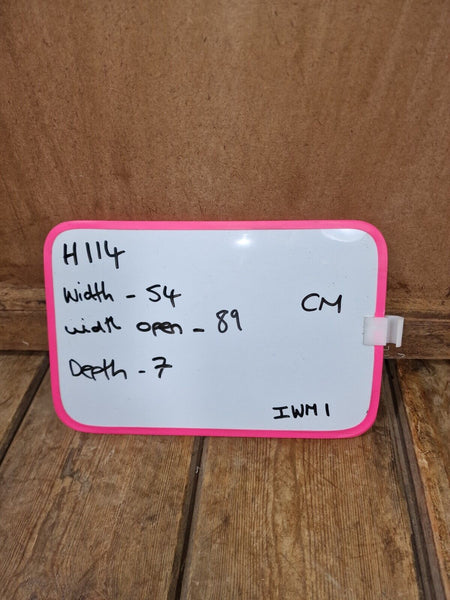 H 114
Width - 54
CM
width open - 89
Depth - 7
IWM 1